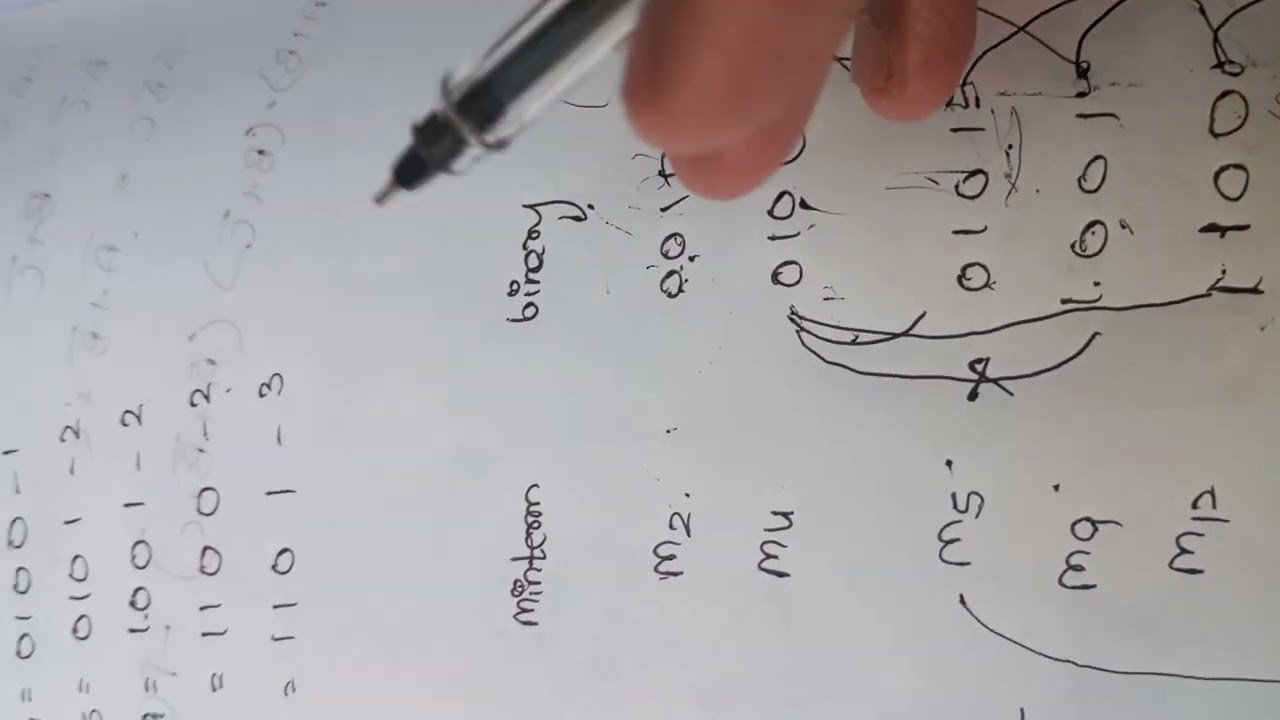 = 0100 - 1
= 0101 - 2
= 1001 - 2
= 1100 - 2
= 1101 - 3
Minterm binary
m2 001
m4 010
m5 0101
m9 1001
m12 1100